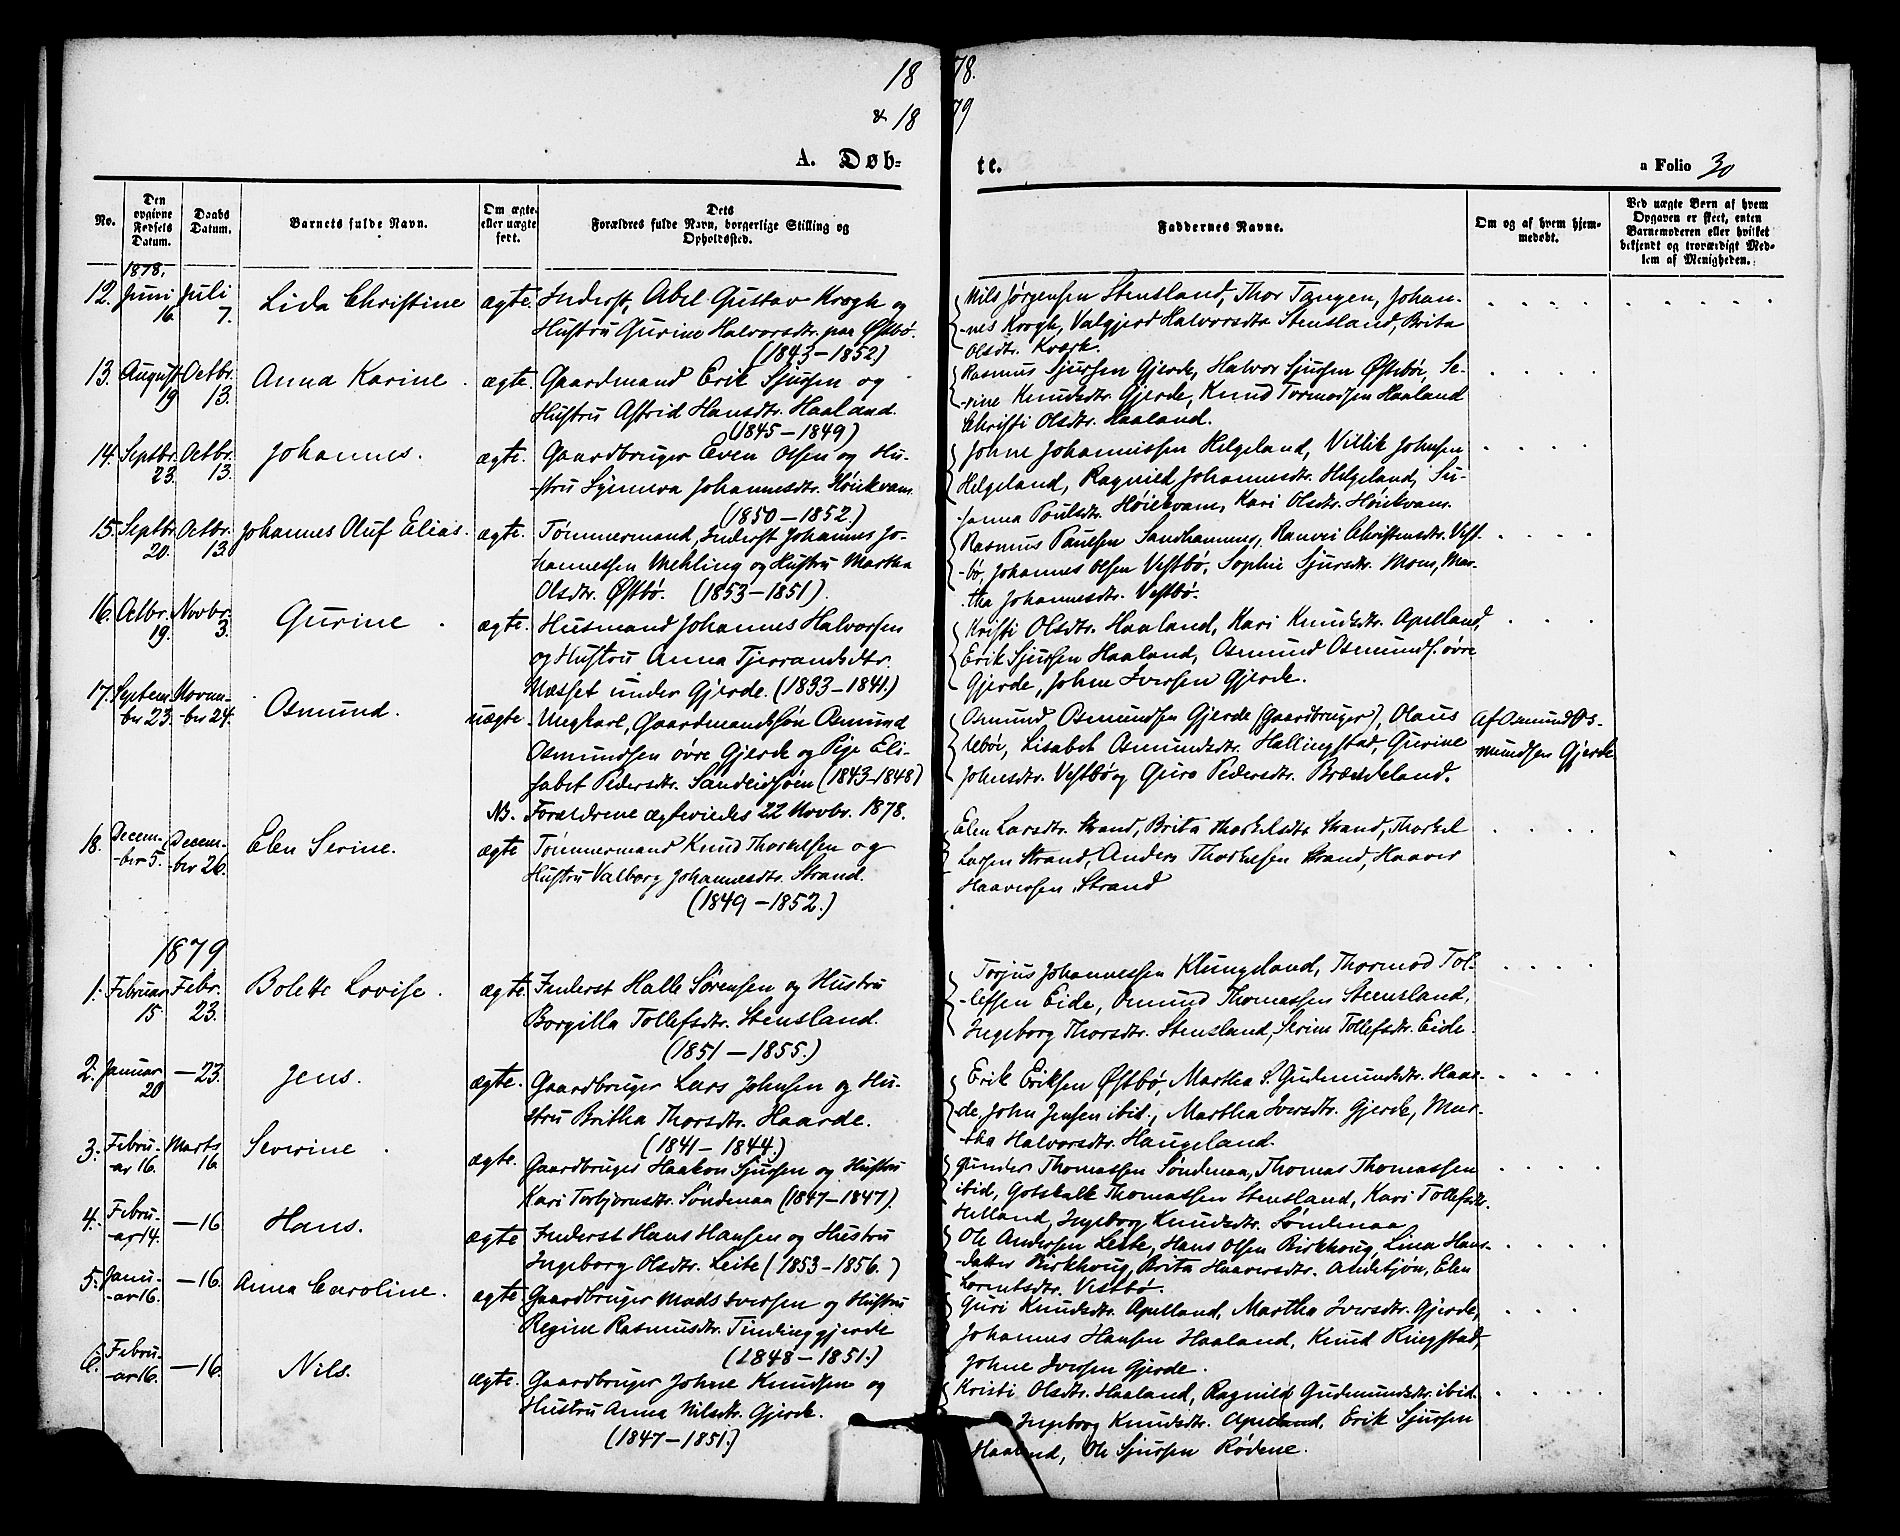 18 78.
& 18 79
A. Døb- te.
a Folio 30
No.
Den opgivne Fødsels Datum.
Daabs Datum.
Barnets fulde Navn.
Om ægte eller uægte født.
Dets Forældres fulde Navn, borgerlige Stilling og Opholdssted.
Faddernes Navne.
Om og af hvem hjemmedøbt.
Ved uægte Børn af hvem Opgaven er skeet, enten Barnemoderen eller hvilket bekjendt og troværdigt Medlem af Menigheden.
1878.
12. Juni 16 Juli 7. Lida Christine ægte. Inderst, Abel Gustav Krogh og
Hustru Gurine Halvorsdtr. paa Østbø.
(1843-1852)
Nils Jørgensen Stensland, Thor Tangen, Johan-
-nes Krogh, Valgjerd Halvorsdtr Stensland, Brita
Olsdtr. Kværk.
13. August 19 Octbr. 13. Anna Karine. ægte. Gaardmand Erik Sjursen og
Hustru Astrid Hansdtr. Haaland.
(1845-1849)
Rasmus Sjursen Gjerde, Halvor Sjursen Østebø, Se-
-rine Knudsdtr. Gjerde, Knud Tormodsen Haaland
Christi Olsdtr. Haaland.
14. Septbr. 23. Octbr. 13. Johannes. ægte. Gaardbruger Even Olsen og Hu-
-stru Synneva Johannesdtr. Høiekvam.
(1850-1852.)
Johne Johannissen Helgeland, Villik Johnsen
Helgeland, Ragnild Johannesdtr. Helgeland, Su-
-sanna Poulsdtr. Høiekvam, Kari Olsdtr. Høiekvam.
15. Septbr. 20. Octbr. 13 Johannes Oluf Elias. ægte. Tømmermand, Inderst Johannes Jo-
hannessen Mehling og Hustru Martha
Olsdtr. Østbø. (1853-1851).
Rasmus Paulsen Sandhammer, Ranvei Christensdtr. Vest-
-bø, Johannes Olsen Vestbø, Sophie Sjursdtr. Moen, Mar-
-tha Johannesdtr. Vestbø.
16. Octbr. 19. Novbr. 3. Gurine. ægte. Husmand Johannes Halvorsen
og Hustru Anna Tjerrandsdtr.
Næsset under Gjerde. (1833-1841.)
Kristi Olsdtr. Haaland, Kari Knudsdtr. Apelland,
Erik Sjursen Haaland, Osmund Osmunds. øvre
Gjerde, Johne Iversen Gjerde.
17. Septem-ber 23. Novem-ber 24. Osmund. uægte. Ungkarl, Gaardmandssøn Osmund
Osmundsen øvre Gjerde og Pige Eli-
sabet Pedersdtr. Sandeidsøen (1843-1848)
NB. Forældrene ægteviedes 22 Novbr. 1878.
Osmund Osmundsen Gjerde (Gaardbruger), Olaus
Lisabet Osmundsdtr. Hallingstad, Gurine
Johnsdtr. Vestbø og Guro Pedersdtr. Brækkeland.
Af Osmund Os-
-mundsen Gjerde
18. Decem-ber 5. Decem-ber 26. Elen Serine. ægte Tømmermand Knud Thorkelsen og
Hustru Valborg Johannesdtr. Strand.
(1849-1852.)
Elen Larsdtr. Strand, Brita Thorkelsdtr Strand, Thorkel
Larsen Strand, Anders Thorkelsen Strand, Haaver
Haaversen Strand
1879
1. Februar 15 Febr. 23. Bolette Lovise. ægte. Inderst Halle Sørensen og Hustru
Borgilla Tollefsdtr. Stensland.
(1851-1855.)
Torjus Johannessen Klungeland, Thormod Tol-
-lefsen Eide, Osmund Thomassen Steensland,
Ingeborg Thorsdtr. Stensland, Serine Tollefsdtr. Eide.
2. Januar 20 -23. Jens. ægte. Gaardbruger Lars Johnsen og Hu-
stru Britha Thorsdtr. Haarde.
(1841-1844.)
Erik Eriksen Østbø, Martha S. Gudmundsdtr. Haar-
de, John Jensen ibid., Martha Iversdtr. Gjerde, Mar-
-tha Halvorsdtr. Haugeland.
3. Febru-ar 16. Marts 16 Severine. ægte. Gaardbruger Haakon Sjursen og Hustru
Kari Torbjørnsdtr. Søndenaa (1847-1847).
Gunder Thomassen Søndenaa, Thomas Thomassen
ibid, Gotskalk Thomassen Stensland, Kari Tollefsdtr.
Helland, Ingeborg Knudsdtr. Søndenaa
4. Febru-ar 14. -16 Hans. ægte Inderst Hans Hansen og Hustru
Ingeborg Olsdtr. Leite (1853-1856.)
Ole Andersen Leite, Hans Olsen Birkhoug, Lina Hans-
-datter Birkhoug, Brita Haaversdtr. Aadetjøn, Elen
Larentsdtr. Vestbø.
5. Janu-ar 16. -16 Anna Caroline. ægte Gaardbruger Mads Iversen og Hustru
Regine Rasmusdtr. Tindinggjerde
(1848-1851.)
Guri Knudsdtr. Apelland, Martha Iversdtr. Gjerde,
Johannes Hansen Haaland, Knud Ringstad,
Johne Iversen Gjerde.
6. Febru-ar 16. -16. Nils. ægte. Gaardbruger Johne Knudsen og
Hustru Anna Nilsdtr. Gjerde.
(1847-1851.)
Kristi Olsdtr. Haaland, Ragnild Gudmundsdtr. ibid.
Ingeborg Knudsdtr. Apelland, Erik Sjursen
Haaland, Ole Sjursen Rødne.